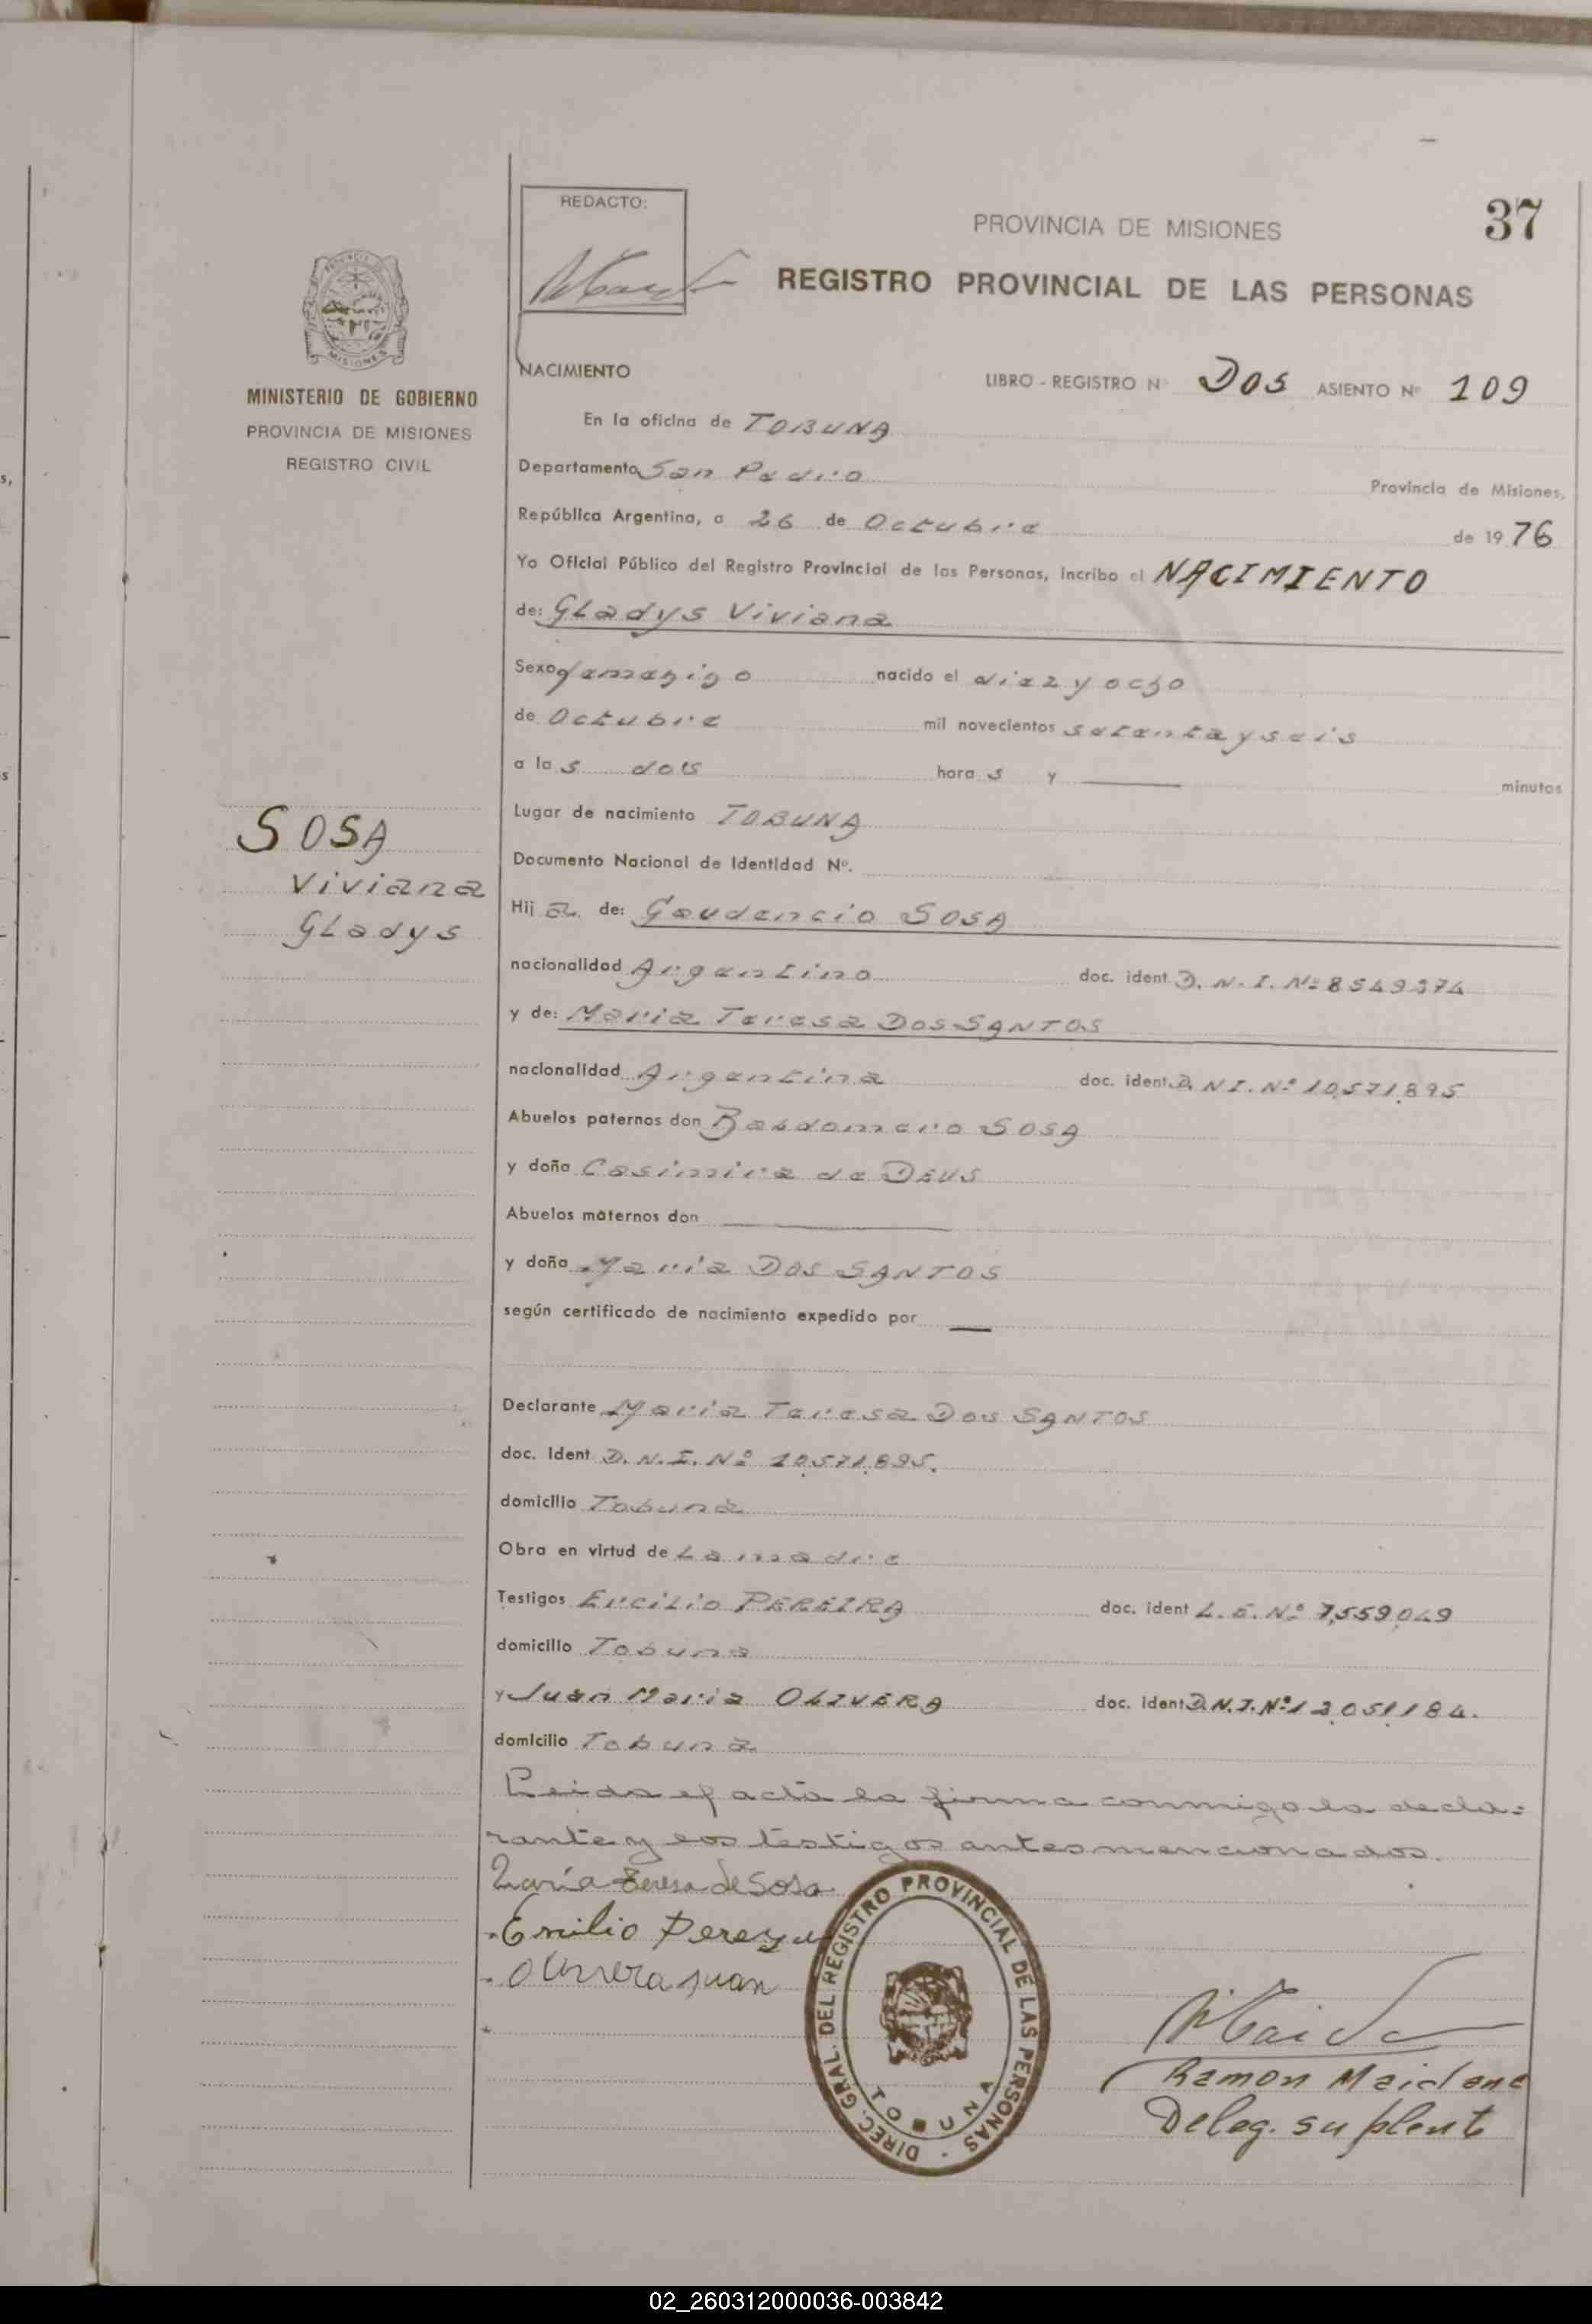 REDACTO:
PROVINCIA DE MISIONES
37
REGISTRO PROVINCIAL DE LAS PERSONAS
MISIONES
MINISTERIO DE GOBIERNO
PROVINCIA DE MISIONES
REGISTRO CIVIL
NACIMIENTO
LIBRO - REGISTRO Nº DOS ASIENTO Nº 109
En la oficina de TOBUNA
Departamento San Pedro Provincia de Misiones,
República Argentina, a 26 de Octubre de 1976
Yo Oficial Público del Registro Provincial de las Personas, incribo el NACIMIENTO
de: Gladys Viviana
Sexo femenino nacido el diez y ocho
de Octubre mil novecientos setenta y seis
a las dos horas y minutos
Lugar de nacimiento TOBUNA
Documento Nacional de Identidad Nº.
SOSA
Viviana
Gladys
Hija de: Gaudencio SOSA
nacionalidad Argentino doc. ident. D.N.I.Nº 8549374
y de: Maria Teresa DOS SANTOS
nacionalidad Argentina doc. ident. D.N.I.Nº 10.571.895
Abuelos paternos don Baldomero SOSA
y doña Casimira de DEUS
Abuelos maternos don
y doña Maria DOS SANTOS
según certificado de nacimiento expedido por
Declarante Maria Teresa DOS SANTOS
doc. ident. D.N.I.Nº 10.571.895.
domicilio Tobuna
Obra en virtud de La madre
Testigos Ercilio PEREIRA doc. ident L.E.Nº 7,559,049
domicilio Tobuna
y Juan Maria OLIVERA doc. ident D.N.I.Nº 12.051.184.
domicilio Tobuna
Leida el acta la firma conmigo la decla=
rante y los testigos antes mencionados.
María Teresa de Sosa
Ercilio Pereyra
Olivera Juan
DIREC. GRAL. DEL REGISTRO PROVINCIAL DE LAS PERSONAS
TOBUNA
Ramon Maidana
Deleg. suplente
02_260312000036-003842